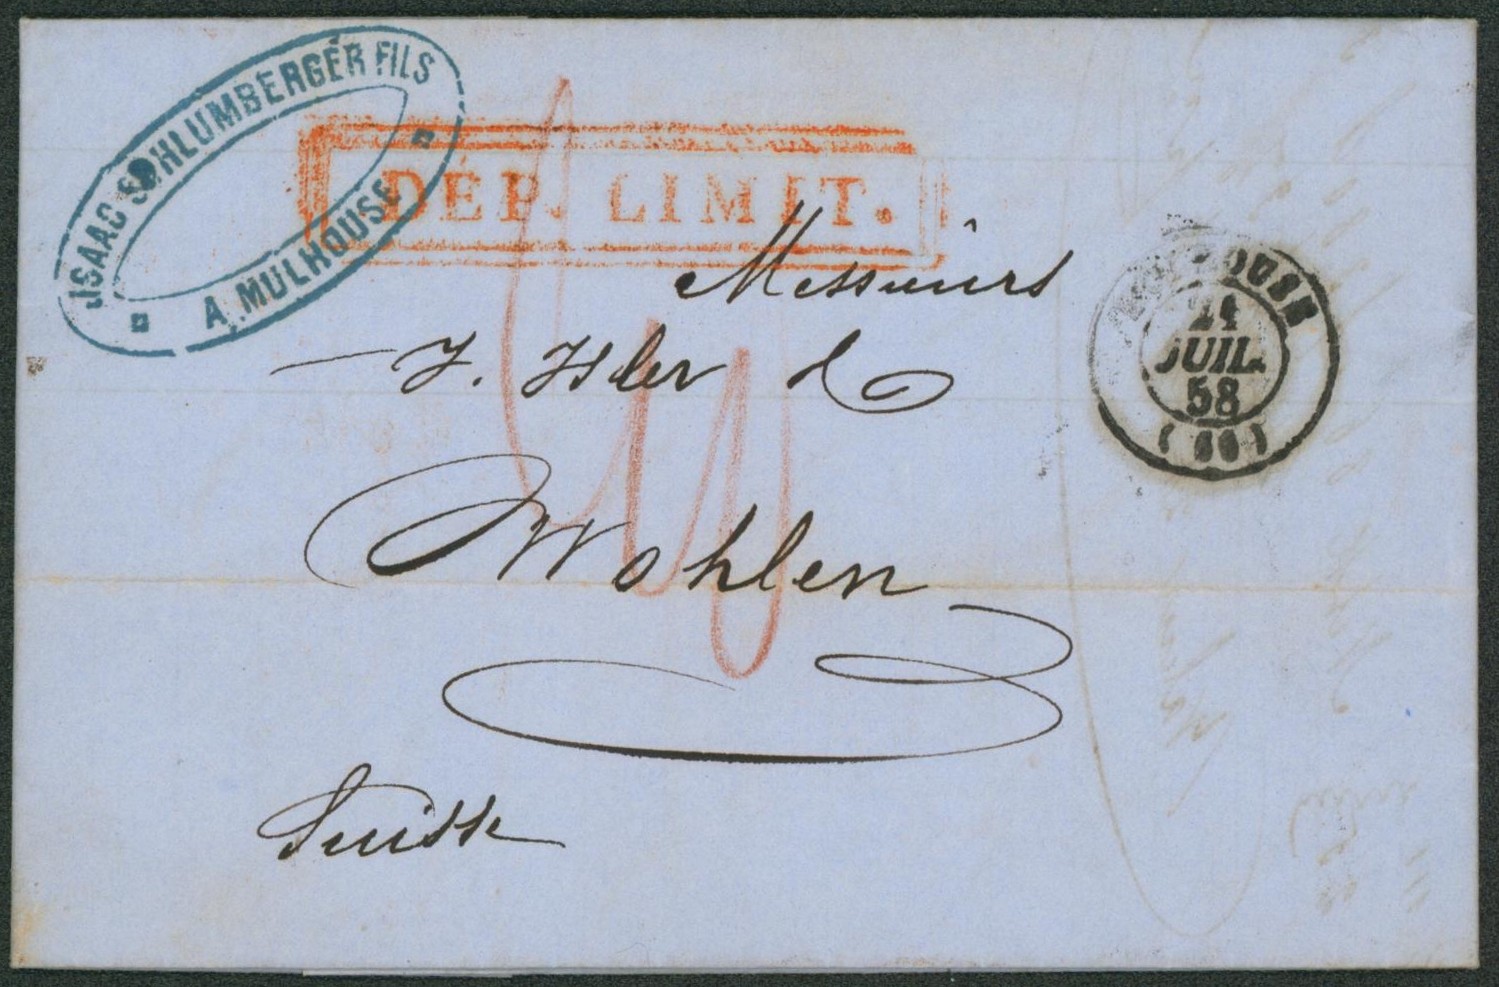 ISAAC SCHLUMBERGER FILS
A MULHOUSE
DÉP. LIMIT.
Messieurs
J. Isler &
Wohlen
Suisse
MULHOUSE
24
JUIL.
58